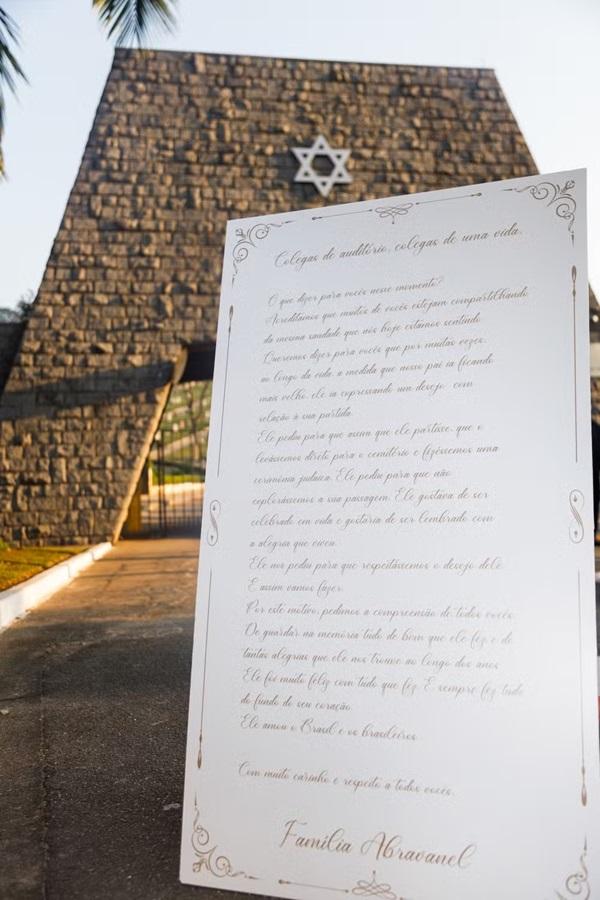 Colegas de auditório, colegas de uma vida.
O que dizer para vocês nesse momento?
Acreditamos que muitos de vocês estejam compartilhando
da mesma saudade que nós hoje estamos sentindo.
Queremos dizer para vocês que por muitas vezes,
ao longo da vida, a medida que nosso pai ia ficando
mais velho, ele ia expressando um desejo com
relação à sua partida.
Ele pediu para que assim que ele partisse, que o
levássemos direto para o cemitério e fizéssemos uma
cerimônia judaica. Ele pediu para que não
explorássemos a sua passagem. Ele gostava de ser
celebrado em vida e gostaria de ser lembrado com
a alegria que viveu.
Ele nos pediu para que respeitássemos o desejo dele.
E assim vamos fazer.
Por este motivo, pedimos a compreensão de todos vocês.
De guardar na memória tudo de bom que ele fez e de
tantas alegrias que ele nos trouxe ao longo dos anos.
Ele foi muito feliz com tudo que fez. E sempre fez tudo
do fundo do seu coração.
Ele amou o Brasil e os brasileiros.
Com muito carinho e respeito a todos vocês.
Família Abravanel